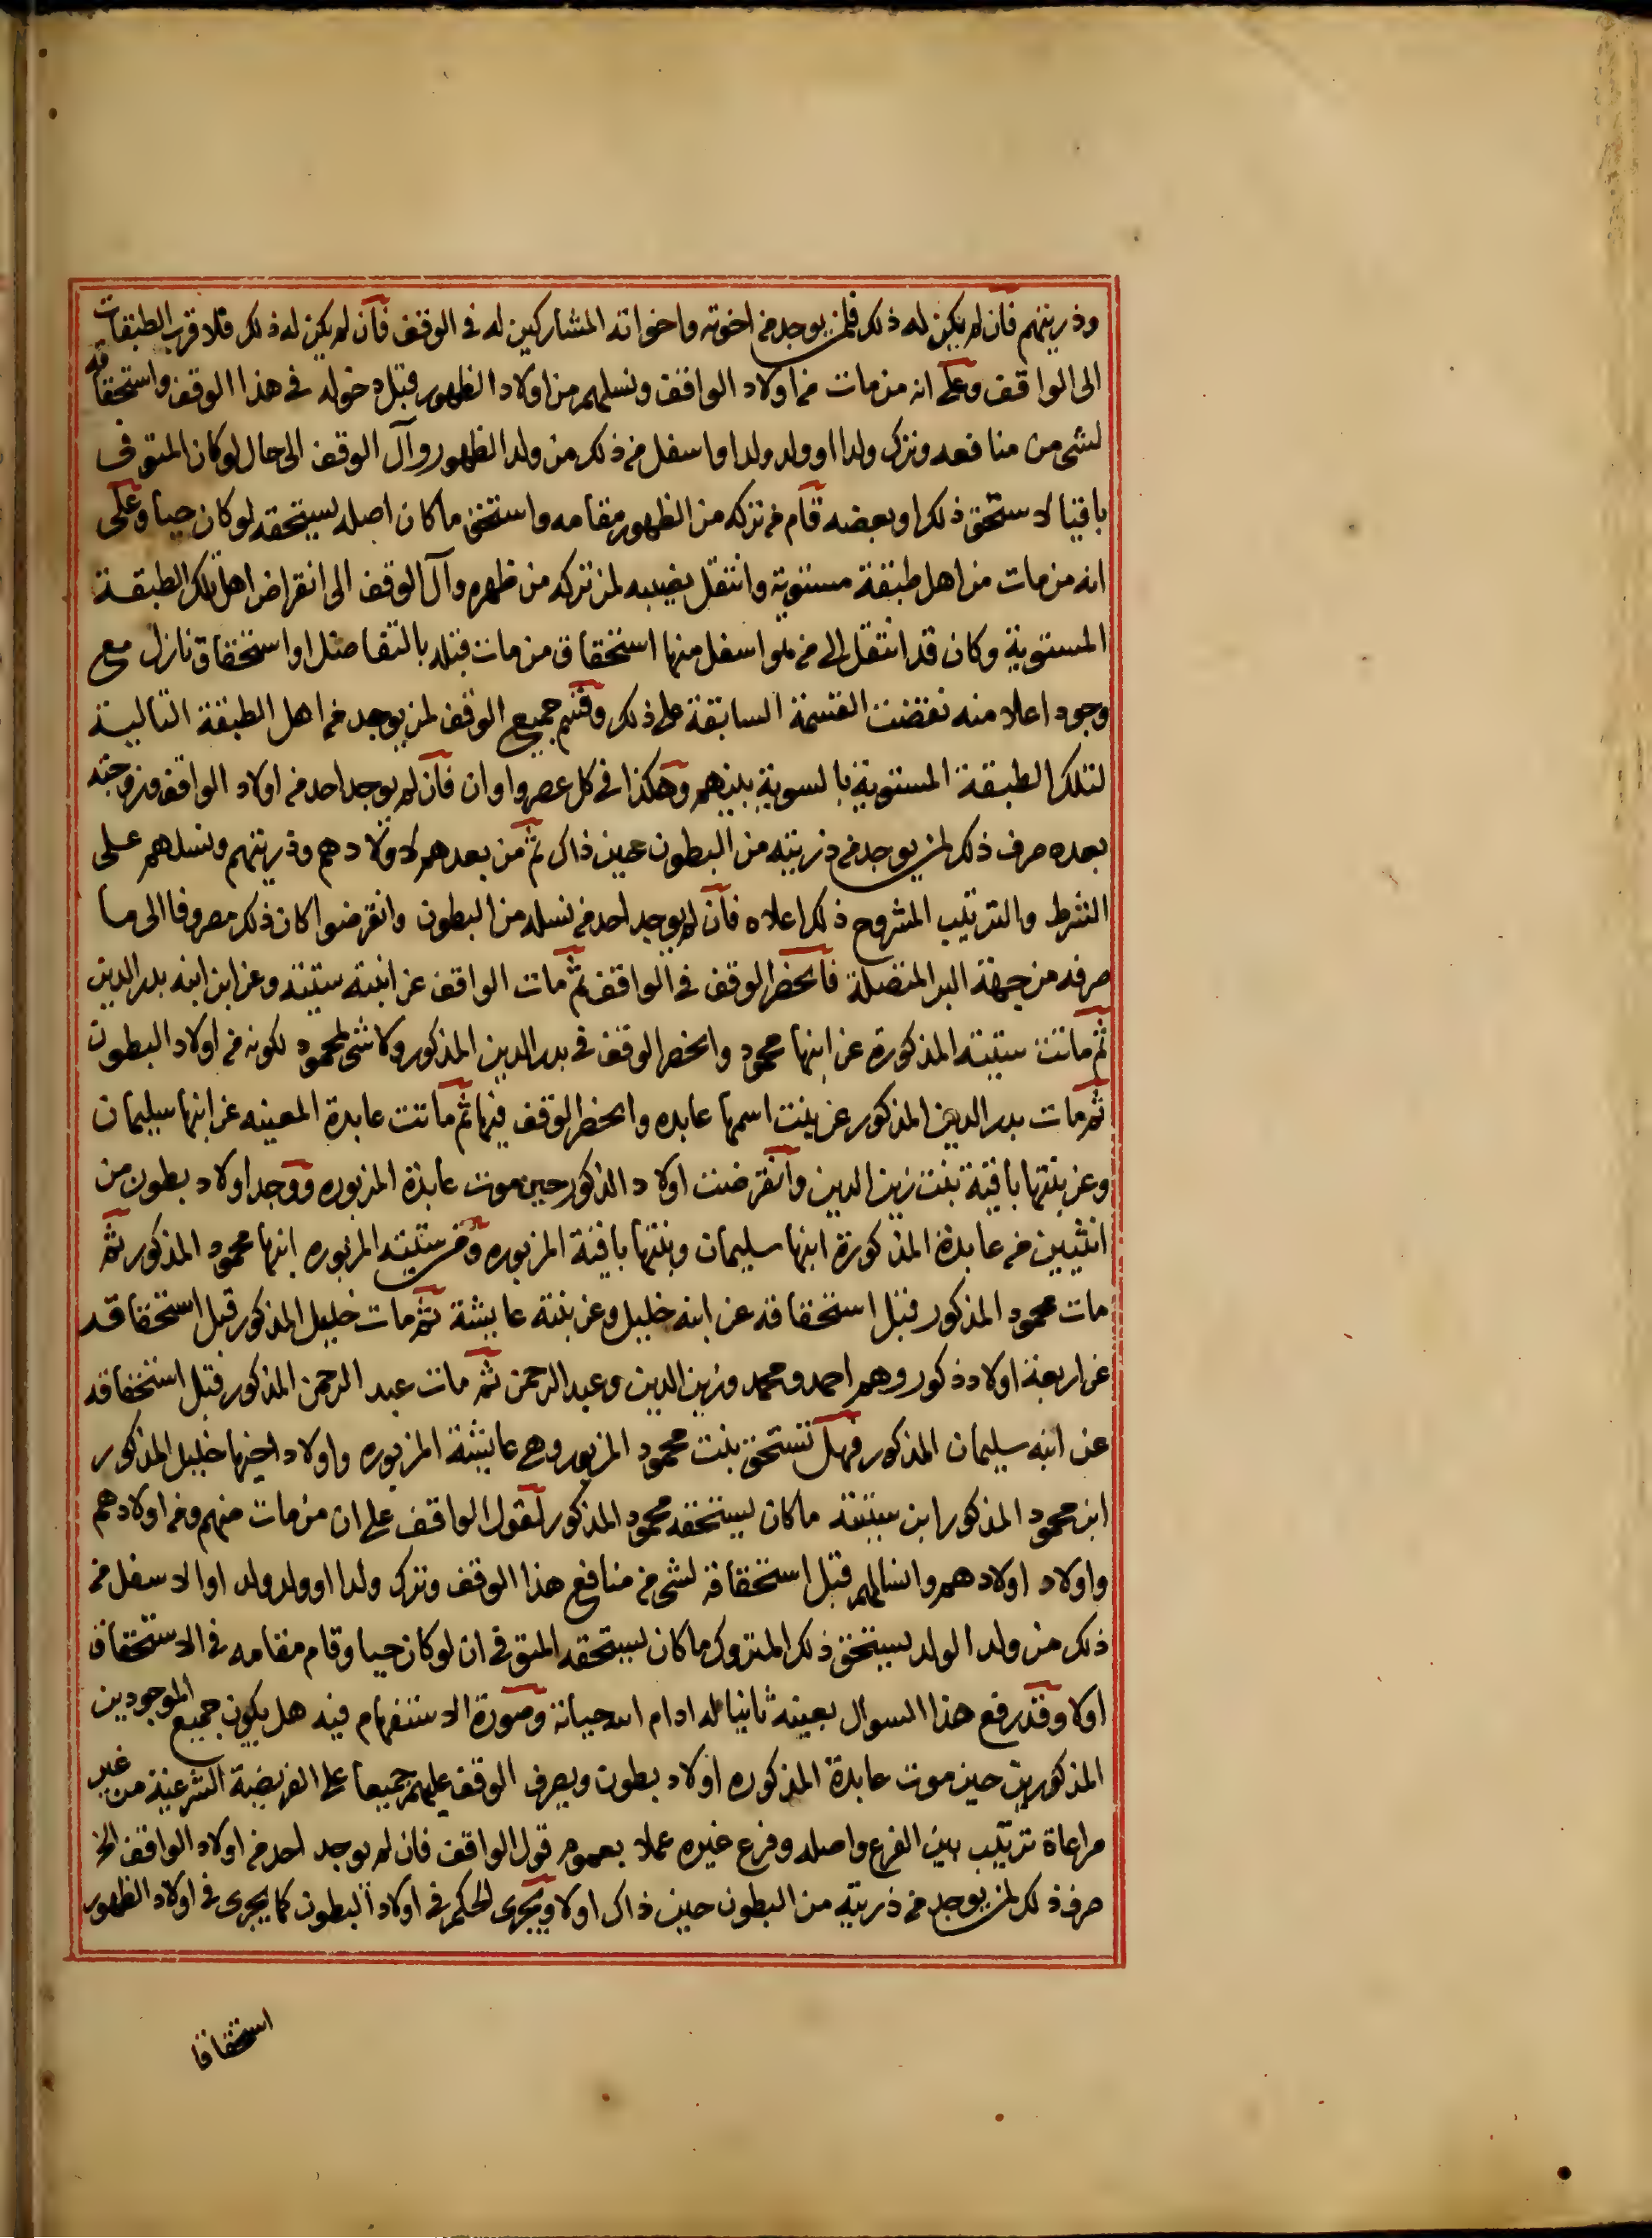 وذريتهم فان لم يكن له ذلك فلمن يوجد من اخوته واخواته المشاركين له في الوقف فان لم يكن له ذلك فلاقرب الطبقات
الى الواقف وعلى انه من مات من اولاد الواقف ونسلهم من اولاد الظهور قبل دخوله في هذا الوقف واستحقاقه
لشى من منافعه وترك ولدا او ولد ولد او اسفل من ذلك من ولد الظهور وآل الوقف الى حال لو كان المتوفى
باقيا لاستحق ذلك او بعضه قام من تركه من الظهور مقامه واستحق ما كان اصله يستحقه لو كان حيا وعلى
انه من مات من اهل طبقة مستوية وانتقل نصيبه لمن تركه من ظهره وآل الوقف الى انقراض اهل تلك الطبقة
المستوية وكان قد انتقل الى من هو اسفل منها استحقاق من مات قبله بالتفاضل او استحقاق نازل مع
وجود اعلا منه نقضت القسمة السابقة على ذلك وقسم جميع الوقف لمن يوجد من اهل الطبقة التالية
لتلك الطبقة المستوية بالسوية بينهم وهكذا في كل عصر واوان فان لم يوجد احد من اولاد الواقف وزوجته
بعده صرف ذلك لمن يوجد من ذريته من البطون حين ذاك ثم من بعدهم لاولادهم وذريتهم ونسلهم على
الشرط والترتيب المشروح ذلك اعلاه فان لم يوجد احد من نسله من البطون وانقرضوا كان ذلك مصروفا الى ما
صرفه من جهة البر المتصلة فانحصر الوقف في الواقف ثم مات الواقف عن ابنته ستيته وعن ابن ابنه بدر الدين
ثم ماتت ستيته المذكورة عن ابنها محمود وانحصر الوقف في بدر الدين المذكور ولا شى لمحمود لكونه من اولاد البطون
ثم مات بدر الدين المذكور عن بنت اسمها عابده وانحصر الوقف فيها ثم ماتت عابدة المعينه عن ابنها سليمان
وعن بنتها باقية بنت زين الدين وانقرضت اولاد الذكور حين موت عابدة المزبوره ووجد اولاد بطون من
انثيين من عابدة المذكورة ابنها سليمان وبنتها باقية المزبوره ومن ستيته المزبوره ابنها محمود المذكور ثم
مات محمود المذكور قبل استحقاقه عن ابنه خليل وعن بنته عايشة ثم مات خليل المذكور قبل استحقاقه
عن اربعة اولاد ذكور وهم احمد ومحمد وزين الدين وعبد الرحمن ثم مات عبد الرحمن المذكور قبل استحقاقه
عن ابنه سليمان المذكور فهل تستحق بنت محمود المزبور وهي عايشة المزبوره واولاد اخيها خليل المذكور
ابن محمود المذكور ابن ستيته ما كان يستحقه محمود المذكور لقول الواقف على ان من مات منهم ومن اولادهم
واولاد اولادهم وانسالهم قبل استحقاقه لشى من منافع هذا الوقف وترك ولدا او ولد ولد او الاسفل من
ذلك من ولد الولد يستحق ذلك المتروك ما كان يستحقه المتوفى ان لو كان حيا وقام مقامه في الاستحقاق
اولا وقد رفع هذا السوال بعينه ثانيا له ادام الله حياته وصورة الاستفهام فيه هل يكون جميع الموجودين
المذكورين حين موت عابدة المذكوره اولاد بطون ويصرف الوقف عليهم جميعا على الفريضة الشرعية من غير
مراعاة ترتيب بين الفرع واصله وفرع غيره عملا بعموم قول الواقف فان لم يوجد احد من اولاد الواقف الخ
صرف ذلك لمن يوجد من ذريته من البطون حين ذاك اولا ويجرى الحكم في اولاد البطون كما يجرى في اولاد الظهور
استحقاقا